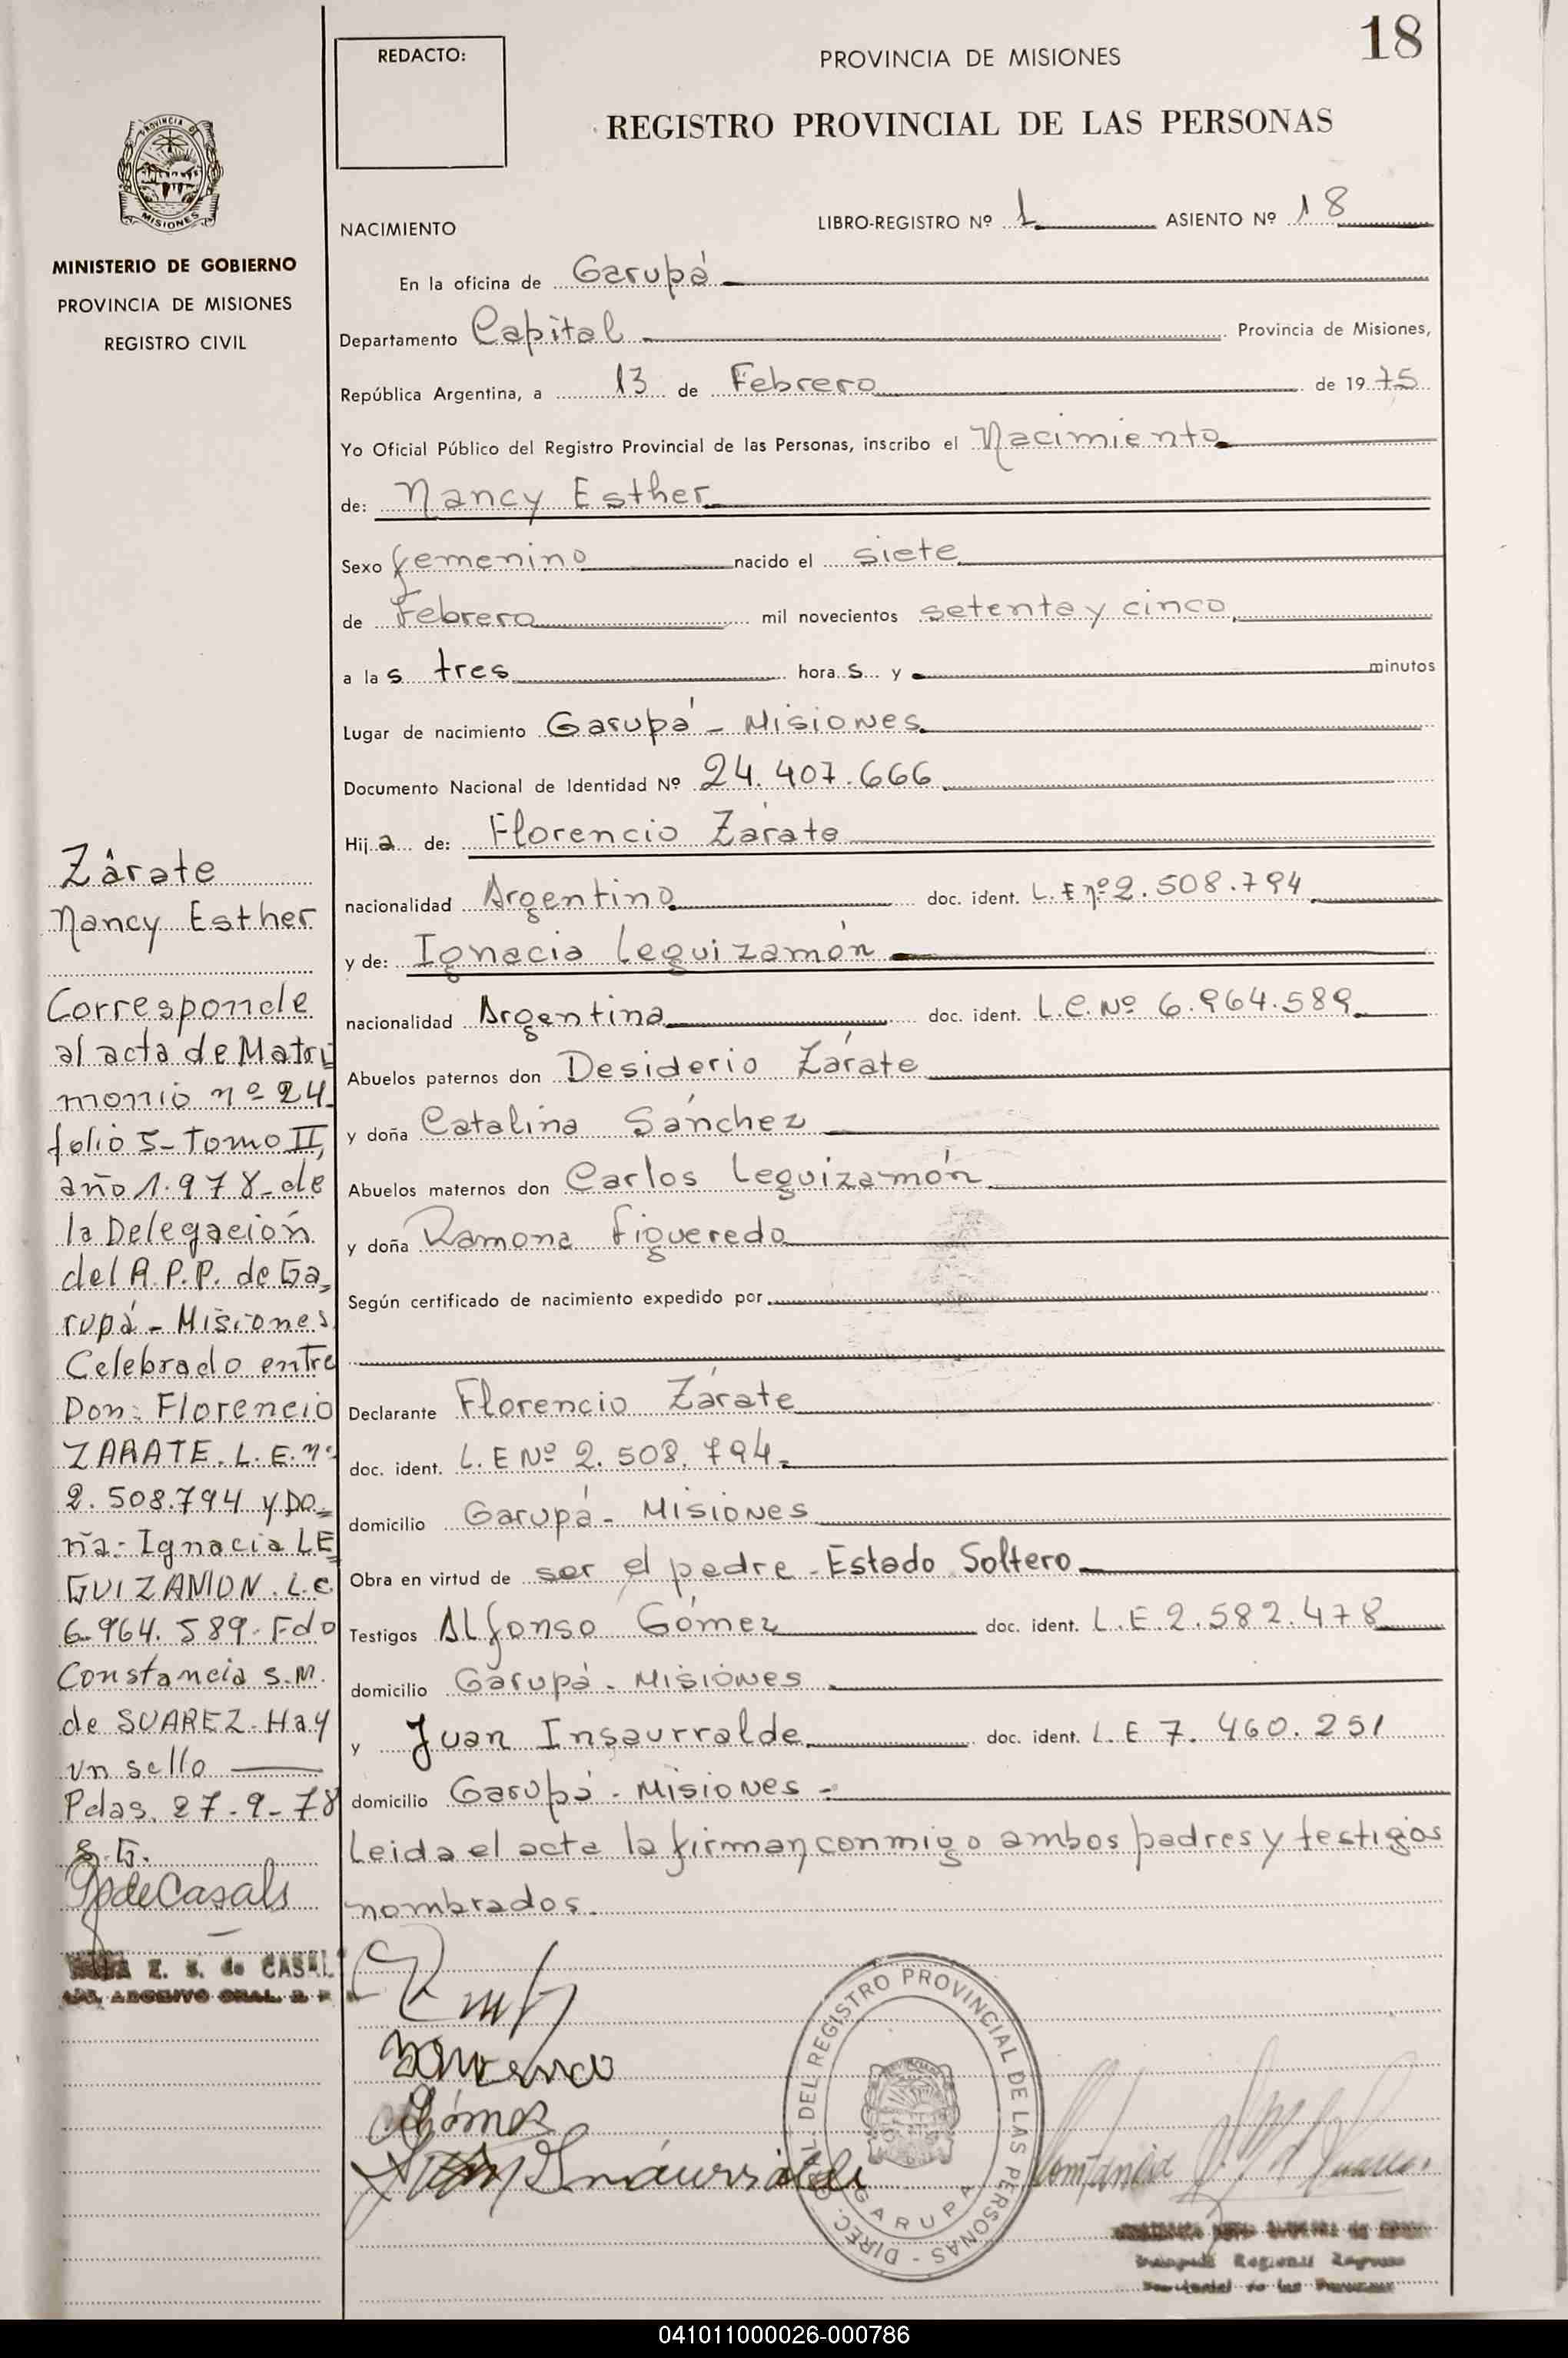 18
REDACTO:
PROVINCIA DE MISIONES
REGISTRO PROVINCIAL DE LAS PERSONAS
PROVINCIA DE
MISIONES
MINISTERIO DE GOBIERNO
PROVINCIA DE MISIONES
REGISTRO CIVIL
NACIMIENTO LIBRO-REGISTRO Nº 1 ASIENTO Nº 18
En la oficina de Garupá
Departamento Capital Provincia de Misiones,
República Argentina, a 13 de Febrero de 1975
Yo Oficial Público del Registro Provincial de las Personas, inscribo el Nacimiento
de: Nancy Esther
Sexo femenino nacido el siete
de Febrero mil novecientos setenta y cinco
a las tres horas y minutos
Lugar de nacimiento Garupá - Misiones
Documento Nacional de Identidad Nº 24.407.666
Hija de: Florencio Zárate
nacionalidad Argentino doc. ident. L.E nº 2.508.794
y de: Ignacia Leguizamón
nacionalidad Argentina doc. ident. L.C. Nº 6.964.589
Abuelos paternos don Desiderio Zárate
y doña Catalina Sánchez
Abuelos maternos don Carlos Leguizamón
y doña Ramona Figueredo
Según certificado de nacimiento expedido por
Declarante Florencio Zárate
doc. ident. L.E Nº 2.508.794
domicilio Garupá - Misiones
Obra en virtud de ser el padre - Estado Soltero
Testigos Alfonso Gómez doc. ident. L.E.2.582.478
domicilio Garupá - Misiones
y Juan Insaurralde doc. ident. L.E 7.460.251
domicilio Garupá - Misiones -
Leida el acta la firman conmigo ambos padres y testigos
nombrados.
Zárate
Nancy Esther
Corresponde
al acta de Matri
monio nº 24
folio 5 - Tomo II,
año 1.978 - de
la Delegación
del R.P.P. de Ga
rupá - Misiones
Celebrado entre
Don: Florencio
ZARATE. L.E. nº
2.508.794 y Do
ña: Ignacia LE
GUIZAMON. L.C
6.964.589. Fdo
Constancia S.M.
de SUAREZ - Hay
un sello
Pdas. 27-9-78
de Casals
E. S. de CASAL
Gómez
Juan Insaurralde
DIREC. GRAL. DEL REGISTRO PROVINCIAL DE LAS PERSONAS -
GARUPA
Constancia S M d Suarez
041011000026-000786